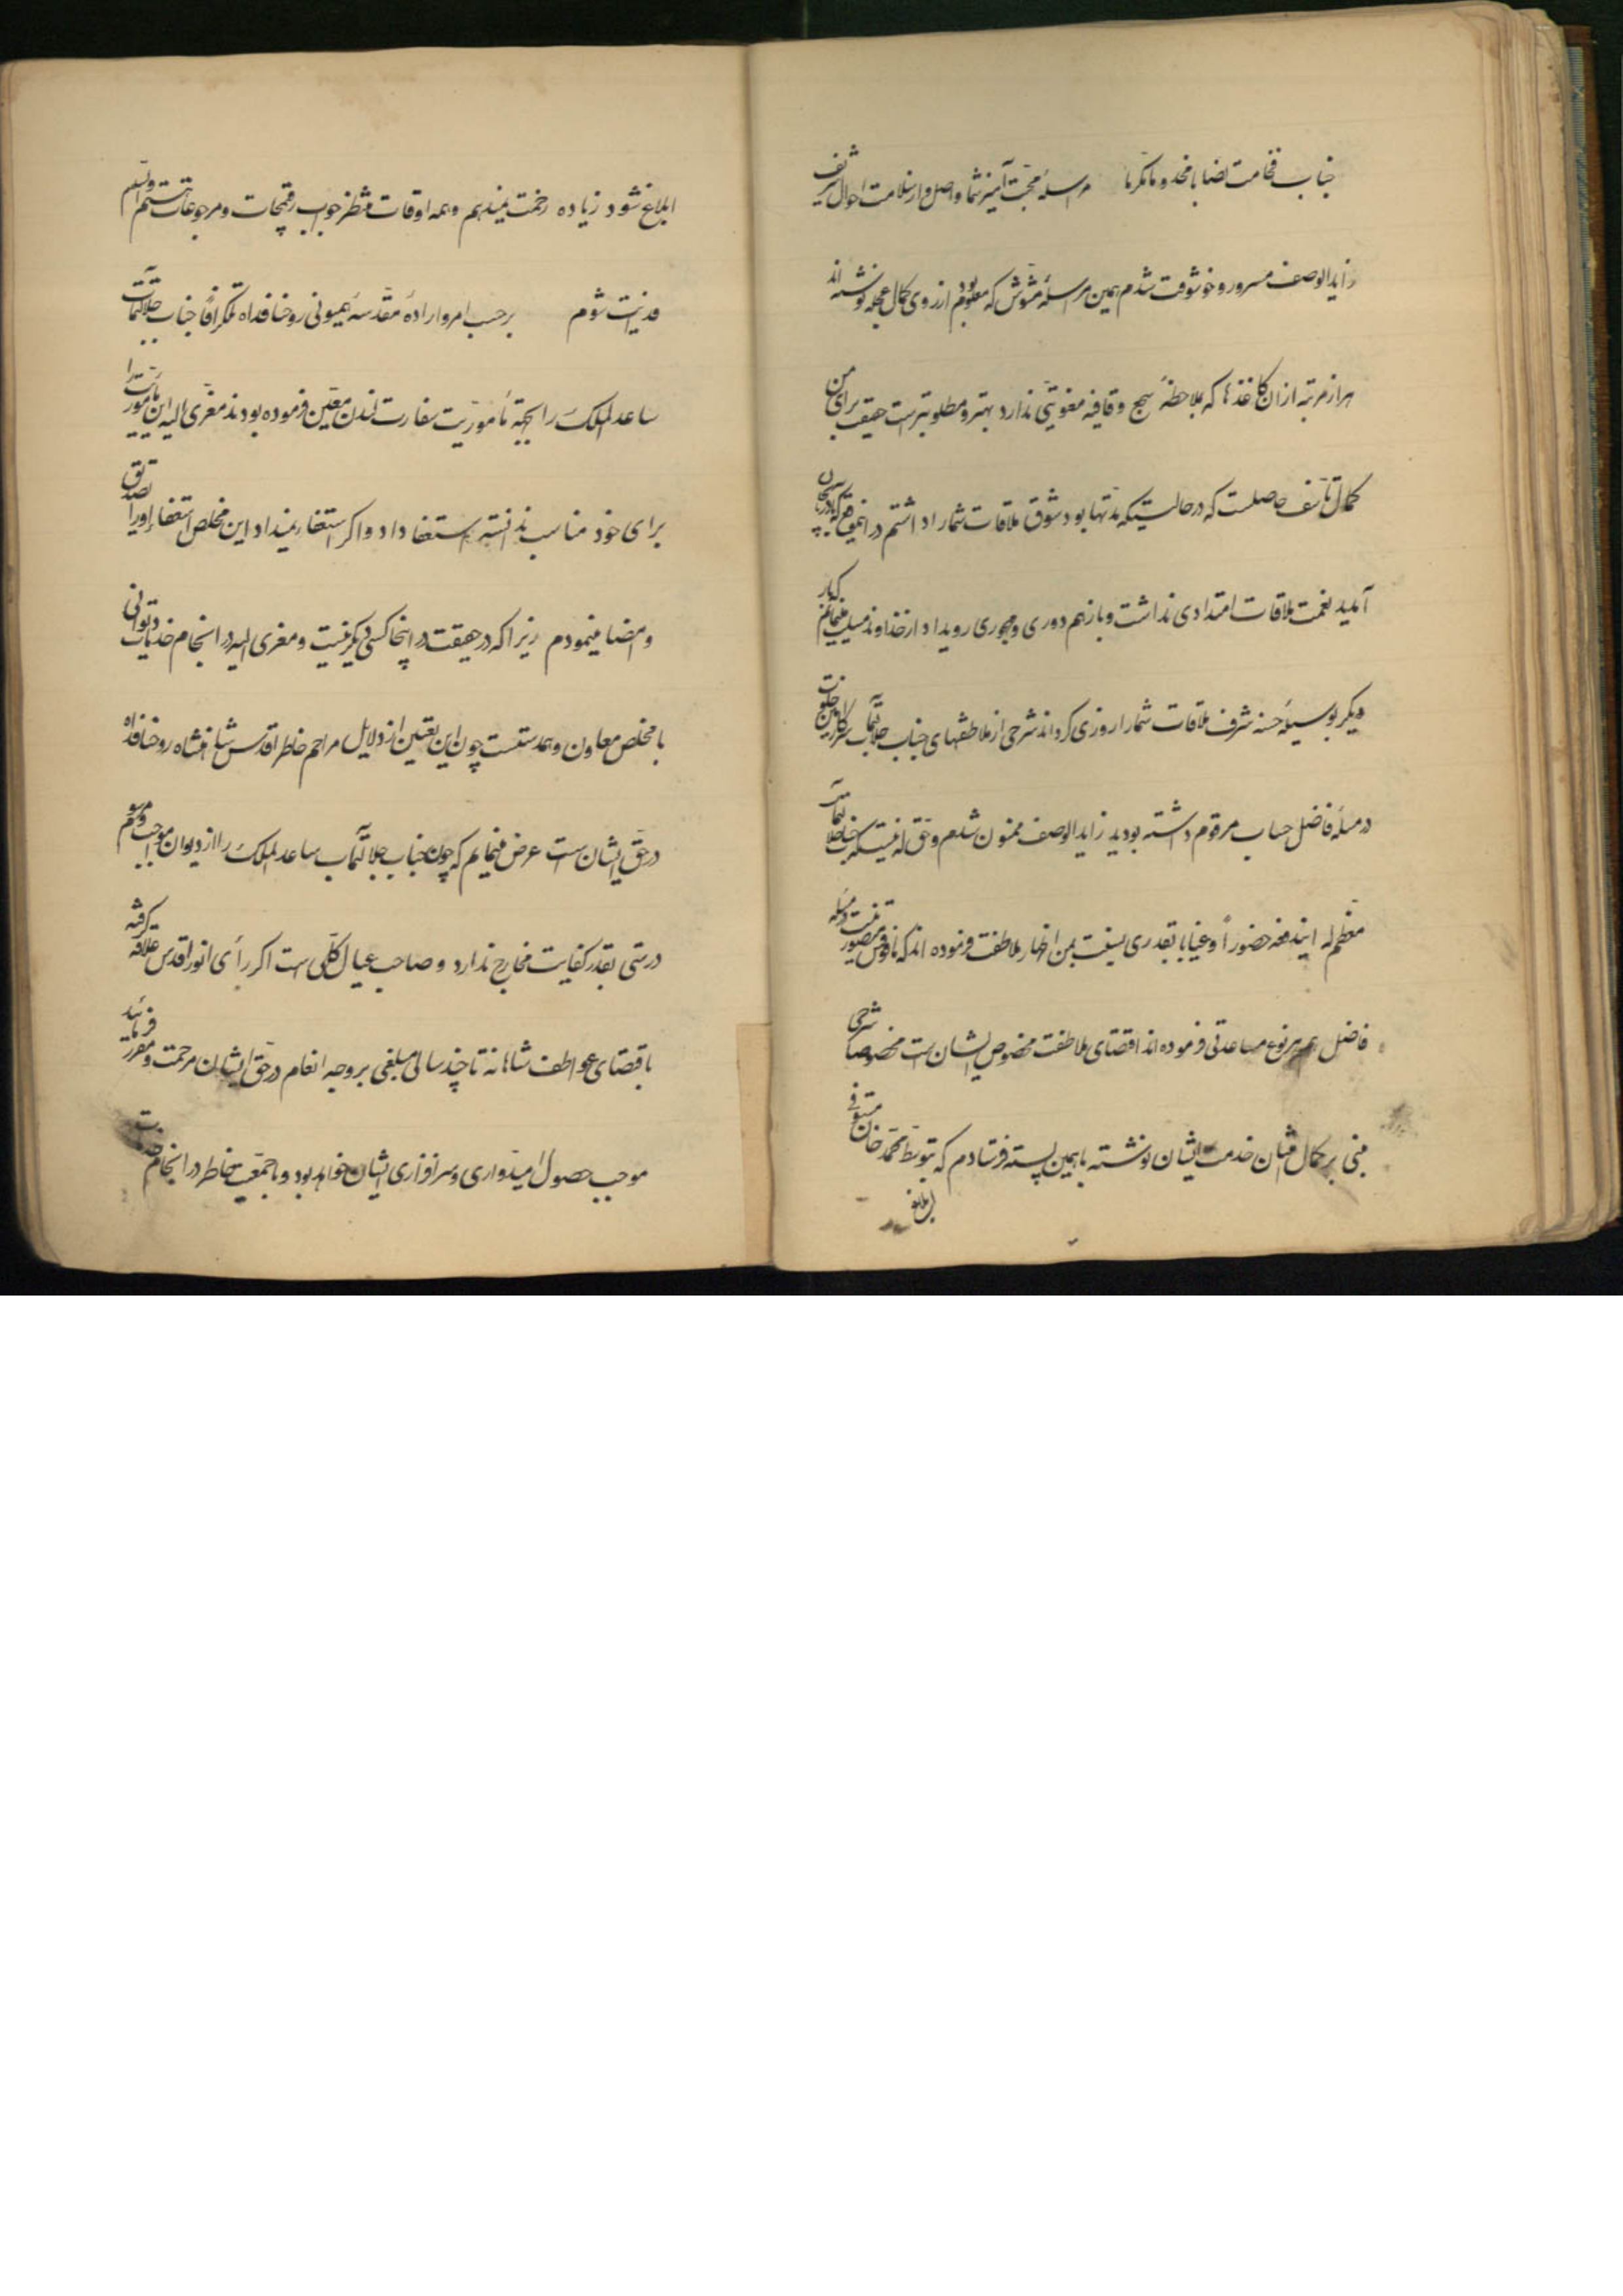 جناب فخامت نصابا مخدوما مکرما مراسلهٔ محبت آمیز شما واصل و از سلامت احوال شریف
زاید الوصف مسرور و خوشوقت شدم همین مراسلهٔ مشوش که معلوم بود از روی کمال عجله نوشته اند
هزار مرتبه از ان کاغذها که بملاحظهٔ سجع و قافیه معنویتی ندارد بهتر و مطلوبتر است حقیقت برای من
کمال تأسف حاصلست که در حالتیکه مدتها بود شوق ملاقات شما را داشتم در اینموقع که بآذربایجان
آمدید نعمت ملاقات امتدادی نداشت و باز هم دوری و مهجوری رویداد از خداوند مسئلت مینمایم که بار
دیگر بوسیلهٔ حسنه شرف ملاقات شما را روزی کرداند شرحی از ملاطفتهای جناب جلالتمآب
در مسئلهٔ فاضل حساب مرقوم داشته بودید زاید الوصف ممنون شدم و حق که جناب جلالتمآب
معظم له ایندفعه حضوراً و غیاباً بقدری نسبت بمن اظهار ملاطفت فرموده اند که مافوق متصور نیست در مسئله
فاضل هم هر نوع مساعدتی فرموده اند اقتضای ملاطفت مخصوص ایشان است مخصوصاً شرحی
مبنی بر کمال امتنان خدمت ایشان نوشته با همین پسته فرستادم که بتوسط محمد خان مستوفی
ابلاغ
ابلاغ شود زیاده زحمت نمیدهم و همه اوقات منتظر جواب رقیمجات و مرجوعات هستم والسلم
فدایت شوم برحسب امر و ارادهٔ مقدسهٔ همیونی روحنا فداه تلکرافاً جناب جلالتمآب
ساعد الملک را بجهة مأموریت سفارت لندن معین فرموده بودند معزی الیه این مأموریت را
برای خود مناسب ندانسته استعفا داد و اکر استعفا نمیداد این مخلص استعفا او را تصدیق
و امضا مینمودم زیرا که در حقیقت در اینجا کسی دیکر نیست و معزی الیه در انجام خدمات دیوانی
با مخلص معاون و همدستست چون این تعیین از دلایل مراحم خاطر اقدس شاهنشاه روحنا فداه
در حق ایشان است عرض مینمایم که چون جناب جلالتمآب ساعد الملک را از دیوان مواجب و مرسوم
درستی بقدر کفایت مخارج ندارد و صاحب عیال کلی است اکر رأی انور اقدس علاقه کرفته
باقتضای عواطف شاهانه تا چند سالی مبلغی بر وجه انعام در حق ایشان مرحمت و مقرر فرمائید
موجب حصول امیدواری و سرافرازی ایشان خواهد بود و با جمعیت خاطر در انجام خدمات